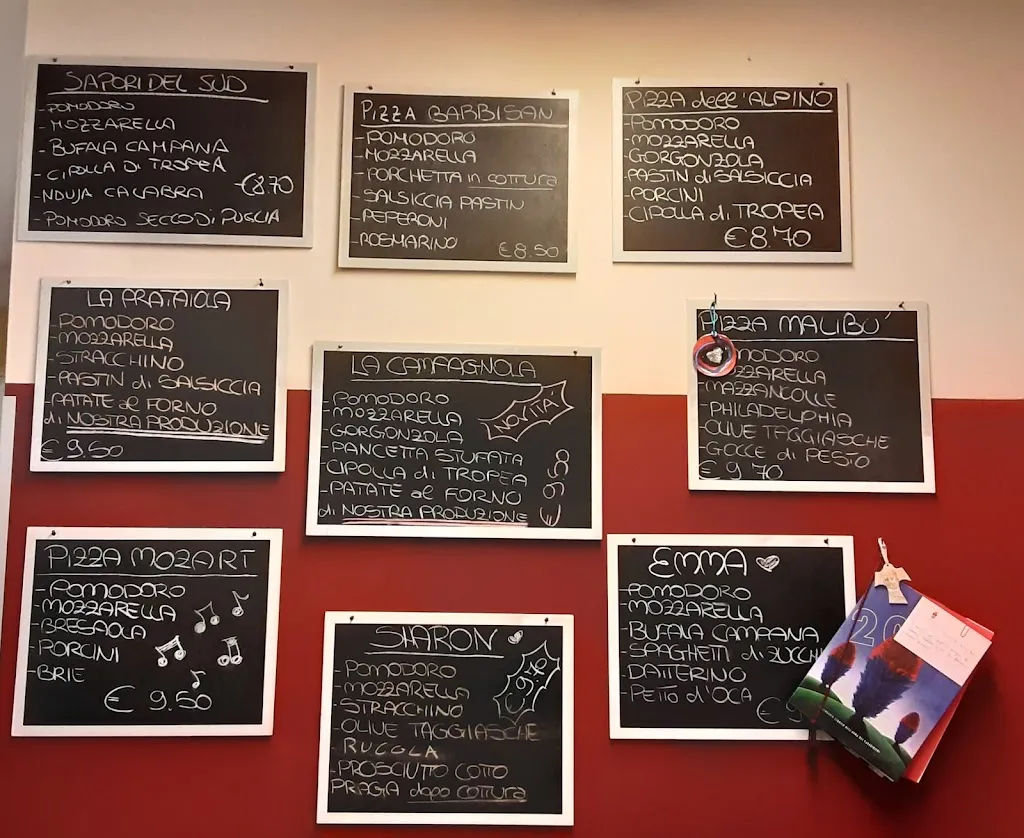 SAPORI DEL SUD
-POMODORO
-MOZZARELLA
-BUFALA CAMPANA
-CIPOLLA DI TROPEA
-NDUJA CALABRA
€8.70
-POMODORO SECCO DI PUGLIA
PIZZA BARBISAN
-POMODORO
-MOZZARELLA
-PORCHETTA in COTTURA
-SALSICCIA PASTIN
-PEPERONI
-ROSMARINO
€8.50
PIZZA dell'ALPINO
-POMODORO
-MOZZARELLA
-GORGONZOLA
-PASTIN di SALSICCIA
-PORCINI
-CIPOLLA di TROPEA
€8.70
LA PRATAIOLA
-POMODORO
-MOZZARELLA
-STRACCHINO
-PASTIN di SALSICCIA
-PATATE al FORNO
di NOSTRA PRODUZIONE
€9.50
LA CAMPAGNOLA
-POMODORO
-MOZZARELLA
-GORGONZOLA
-PANCETTA STUFATA
-CIPOLLA di TROPEA
-PATATE al FORNO
di NOSTRA PRODUZIONE
NOVITA'
€9.50
PIZZA MALIBU'
MODORO
ZZARELLA
-MAZZANCOLLE
-PHILADELPHIA
-OLIVE TAGGIASCHE
-GOCCE di PESTO
€9.70
PIZZA MOZART
-POMODORO
-MOZZARELLA
-BRESAOLA
-PORCINI
-BRIE
€9.50
SHARON
-POMODORO
-MOZZARELLA
-STRACCHINO
-OLIVE TAGGIASCHE
-RUCOLA
-PROSCIUTTO COTTO
PRAGA dopo COTTURA
EMMA
-POMODORO
-MOZZARELLA
-BUFALA CAMPANA
-SPAGHETTI di ZUCCHI
-DATTERINO
-PETTO d'OCA
20